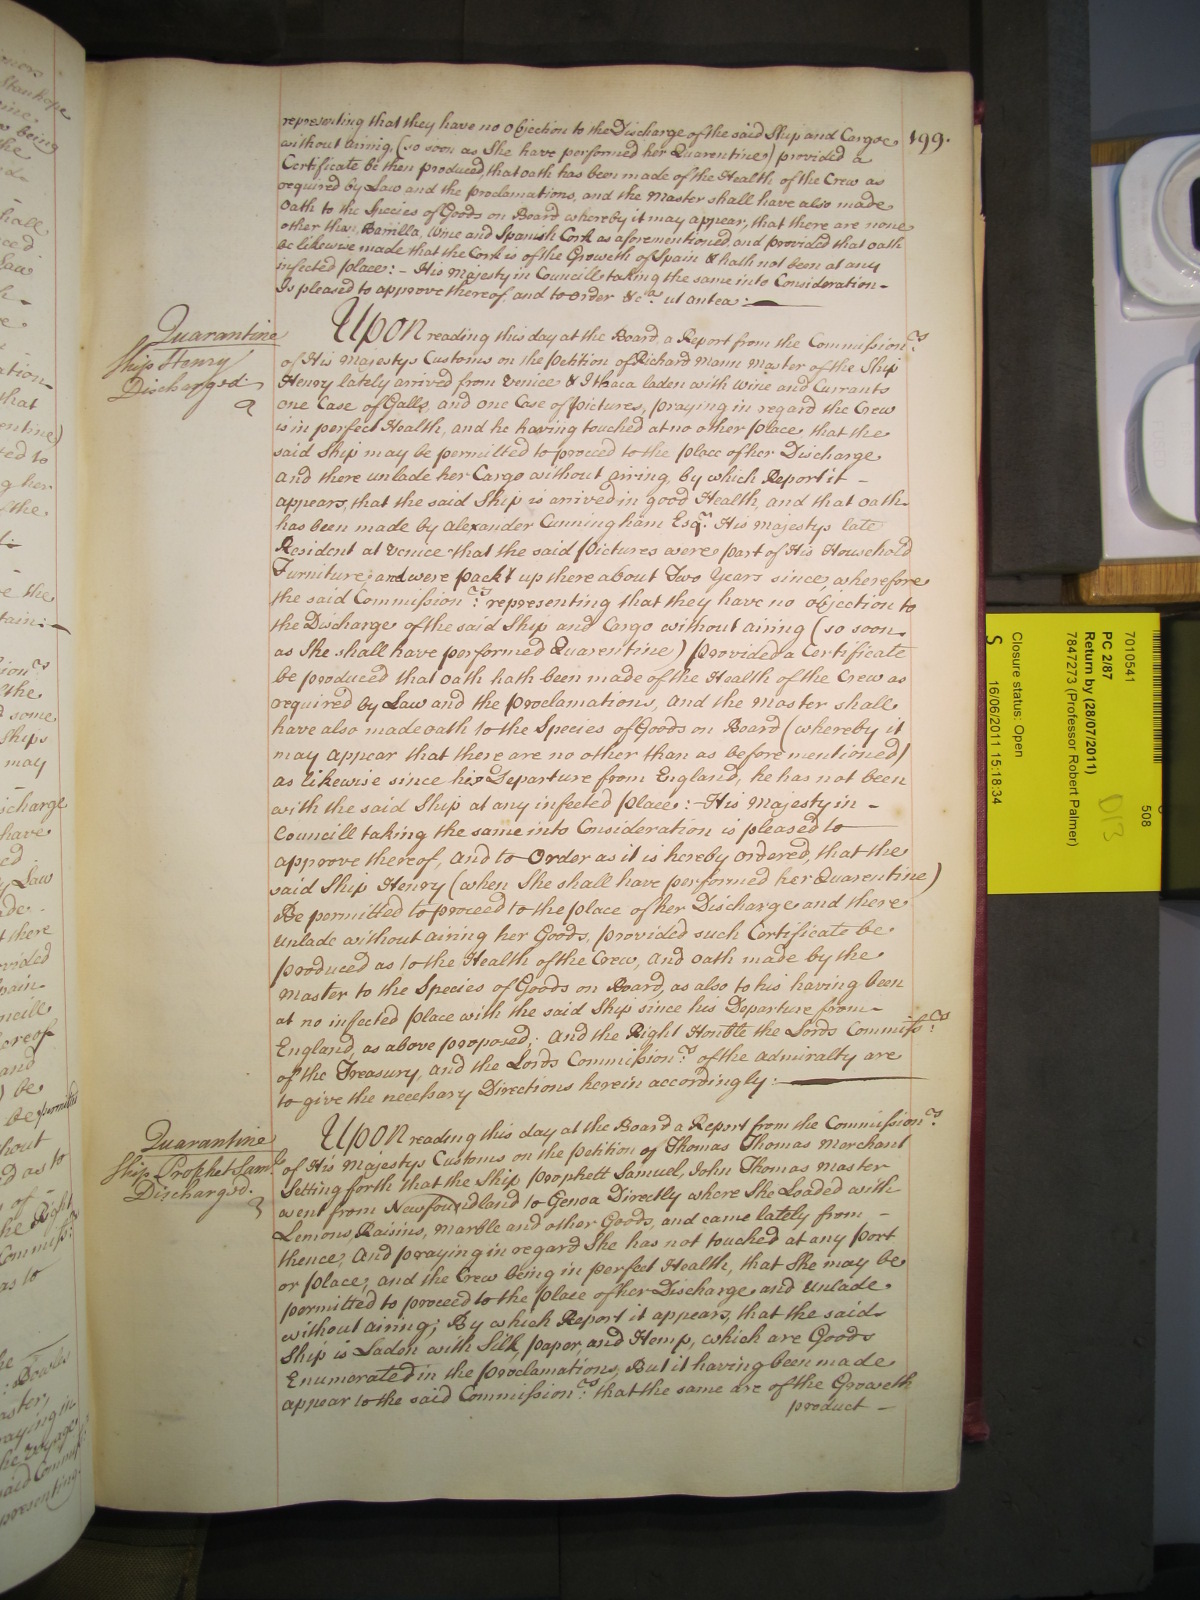 199.
representing that they have no Objection to the Discharge of the said Ship and Cargoe
without airing, (so soon as She have performed her Quarentine) provided a
Certificate be then produced, that oath has been made of the Health of the Crew as
required by Law and the Proclamations, and the Master shall have also made
Oath to the Species of Goods on Board whereby it may appear, that there are none
other than Barrilla, Wine and Spanish Cork as aforementioned, and provided that oath
be likewise made that the Cork is of the Groweth of Spain & hath not been at any
infected place: - His Majesty in Councill taking the same into Consideration -
Is pleased to approve thereof, and to Order &ca. ut antea:
Quarantine
Ship Henry
Discharged
Upon reading this day at the Board, a Report from the Commissionrs.
of His Majestys Customs on the Petition of Richard Mann Master of the Ship
Henry lately arrived from Venice & Ithaca laden with Wine and Currants
one Case of Galls, and one Case of Pictures, praying in regard the Crew
is in perfect Health, and he having touched at no other place, that the
said Ship may be permitted to proceed to the place of her Discharge
and there unlade her Cargo without airing, by which Report it -
appears, that the said Ship is arrived in good Health, and that oath
has been made by Alexander Cunningham Esqr. His Majestys late
Resident at Venice that the said Pictures were part of His Household
Furniture, and were packt up there about Two Years since, wherefore
the said Commissionrs. representing that they have no objection to
the Discharge of the said Ship and Cargo without airing (so soon
as She shall have performed Quarentine) provided a Certificate
be produced that oath hath been made of the Health of the Crew as
required by Law and the Proclamations, and the Master shall
have also made oath to the Species of Goods on Board (whereby it
may appear that there are no other than as before mentioned)
as likewise since his Departure from England, he has not been
with the said Ship at any infected place: - His Majesty in -
Councill taking the same into Consideration is pleased to
approve thereof, and to Order as it is hereby ordered, that the
said Ship Henry (when She shall have performed her Quarentine)
Be permitted to proceed to the place of her Discharge and there
unlade without airing her Goods, provided such Certificate be
produced as to the Health of the Crew, and oath made by the
Master to the Species of Goods on Board, as also to his having been
at no infected place with the said Ship since his Departure from
England, as above proposed; And the Right Honble the Lords Commissrs.
of the Treasury, and the Lords Commissionrs. of the Admiralty are
to give the necessary Directions herein accordingly:
Quarantine
Ship Prophet Saml.
Discharged.
Upon reading this day at the Board a Report from the Commissionrs.
of His Majestys Customs on the petition of Thomas Thomas Merchant
Setting forth that the Ship Prophett Samuel, John Thomas Master
went from Newfoundland to Genoa Directly where She Loaded with
Lemons, Raisins, Marble and other Goods, and came lately from -
thence, And praying in regard She has not touched at any Port
or place, and the Crew being in perfect Health, that She may be
permitted to proceed to the place of her Discharge and unlade
without airing; By which Report it appears, that the said
Ship is Laden with Silk, paper, and Hemp, which are Goods
Enumerated in the Proclamations, But it having been made
appear to the said Commissionrs. that the same are of the Groweth
product -
7010541
508
PC 2/87
Return by (28/07/2011)
7847273 (Professor Robert Palmer)
D13
Closure status: Open
16/06/2011 15:18:34
S